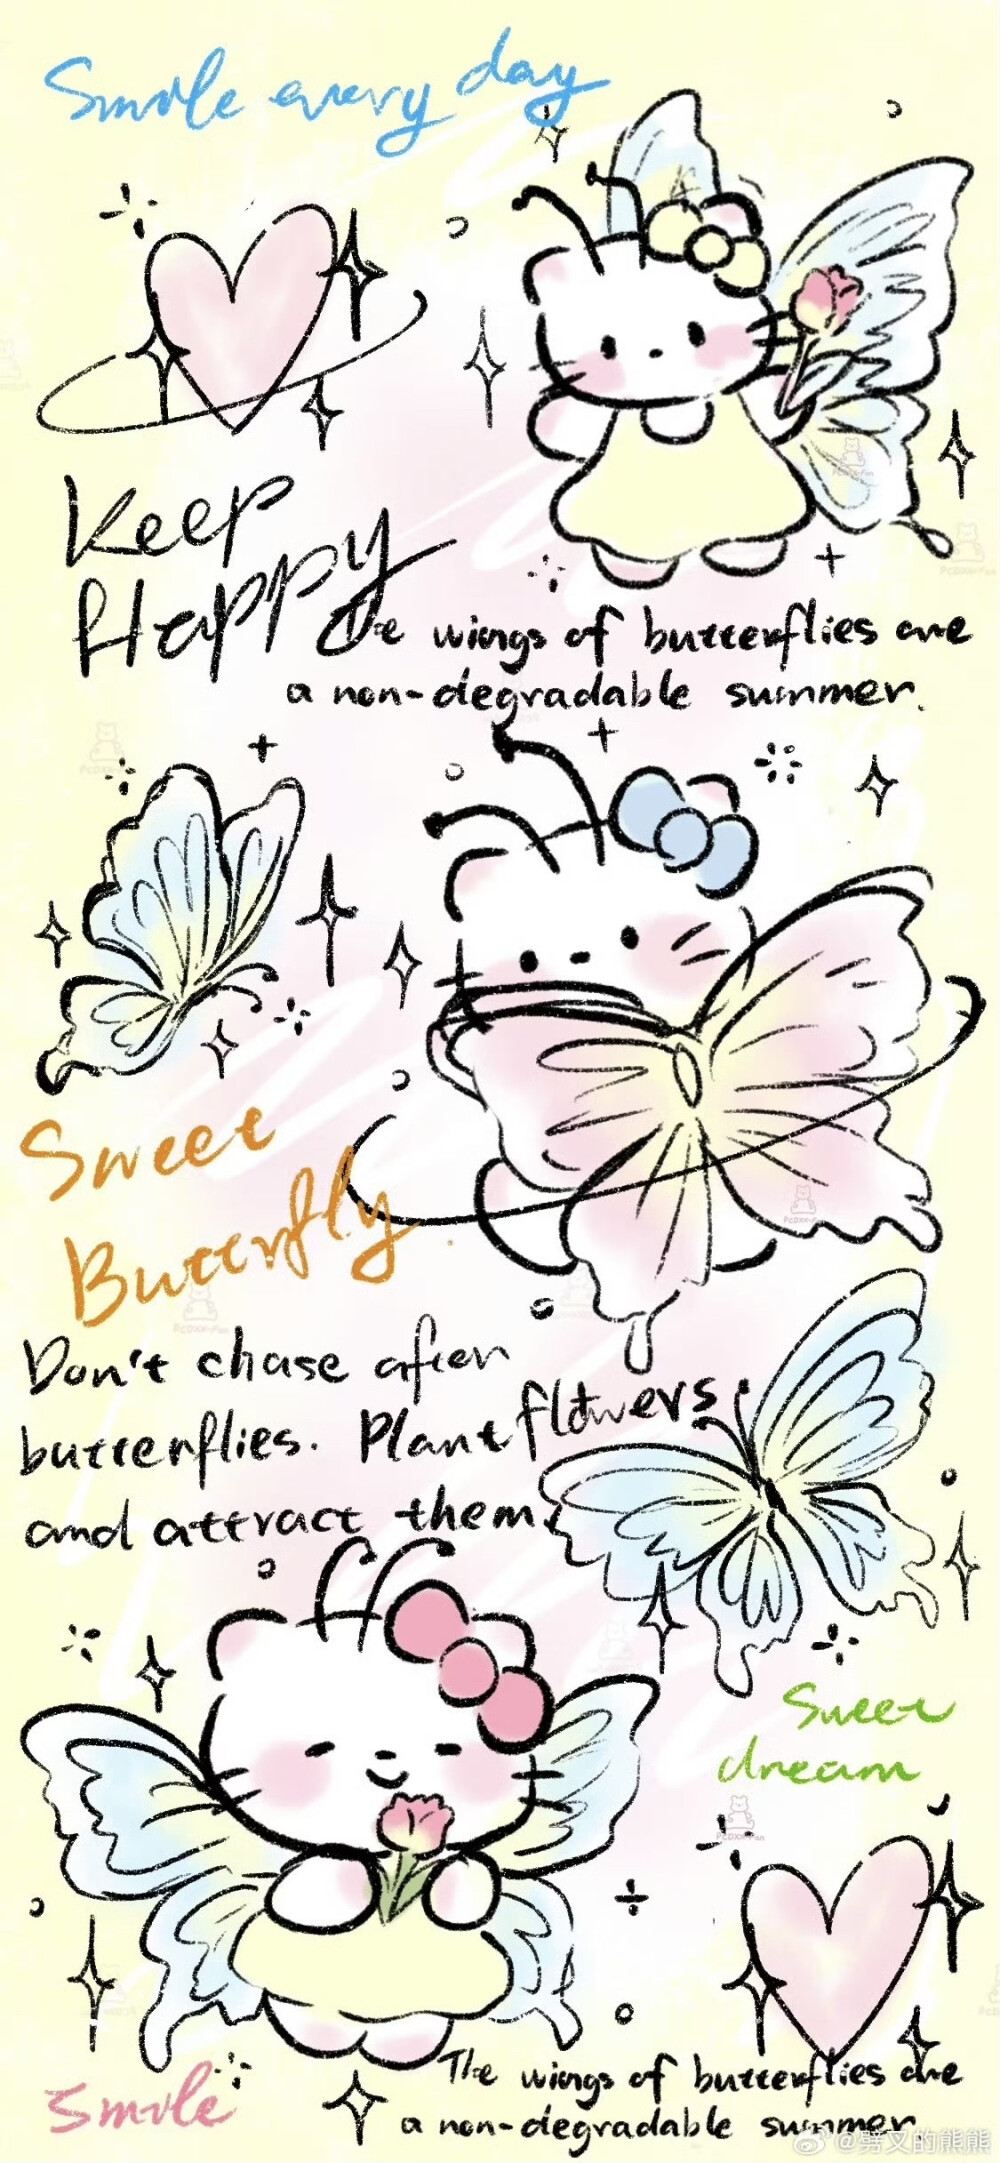 Smile every day
Keep
Happy
The wings of butterflies are
a non-degradable summer.
Sweet
Butterfly.
Don't chase after
butterflies. Plant flowers
and attract them.
Sweet
dream
Smile
The wings of butterflies are
a non-degradable summer.
@劈叉的熊熊